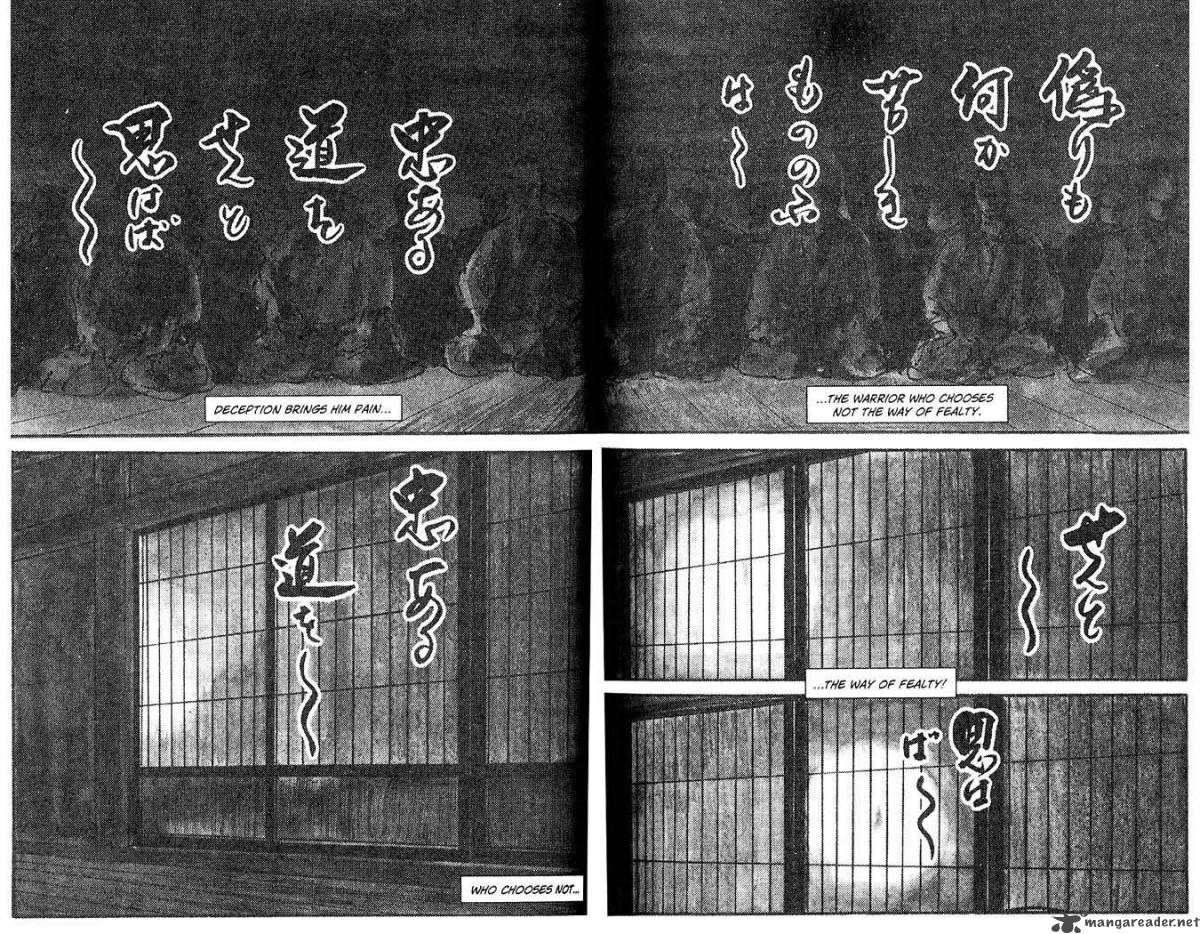 偽りも
何か
せむしき
もののふ
は～
忠ある
道を
せんと
思はば
～
DECEPTION BRINGS HIM PAIN...
...THE WARRIOR WHO CHOOSES
NOT THE WAY OF FEALTY.
忠ある
道を～
WHO CHOOSES NOT...
せんと
～
...THE WAY OF FEALTY!
思は
ば～
mangareader.net